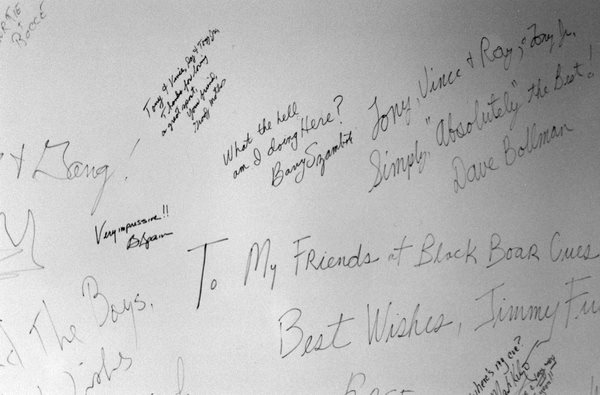 & Rocce
Tony & Vinnie, Ray & Tony Jr.
Thanks for being
a great sport,
Your friend,
What the hell
am I doing Here?
Barry Szamboti
Tony Vince & Ray & Tony Jr.
Simply "Absolutely" the Best!
Dave Bollman
& Gang!
Very impressive!!
B Spain
To My Friends at Black Boar Cues
Best Wishes, Jimmy Fu
d The Boys.
Wishes
where's my cue?